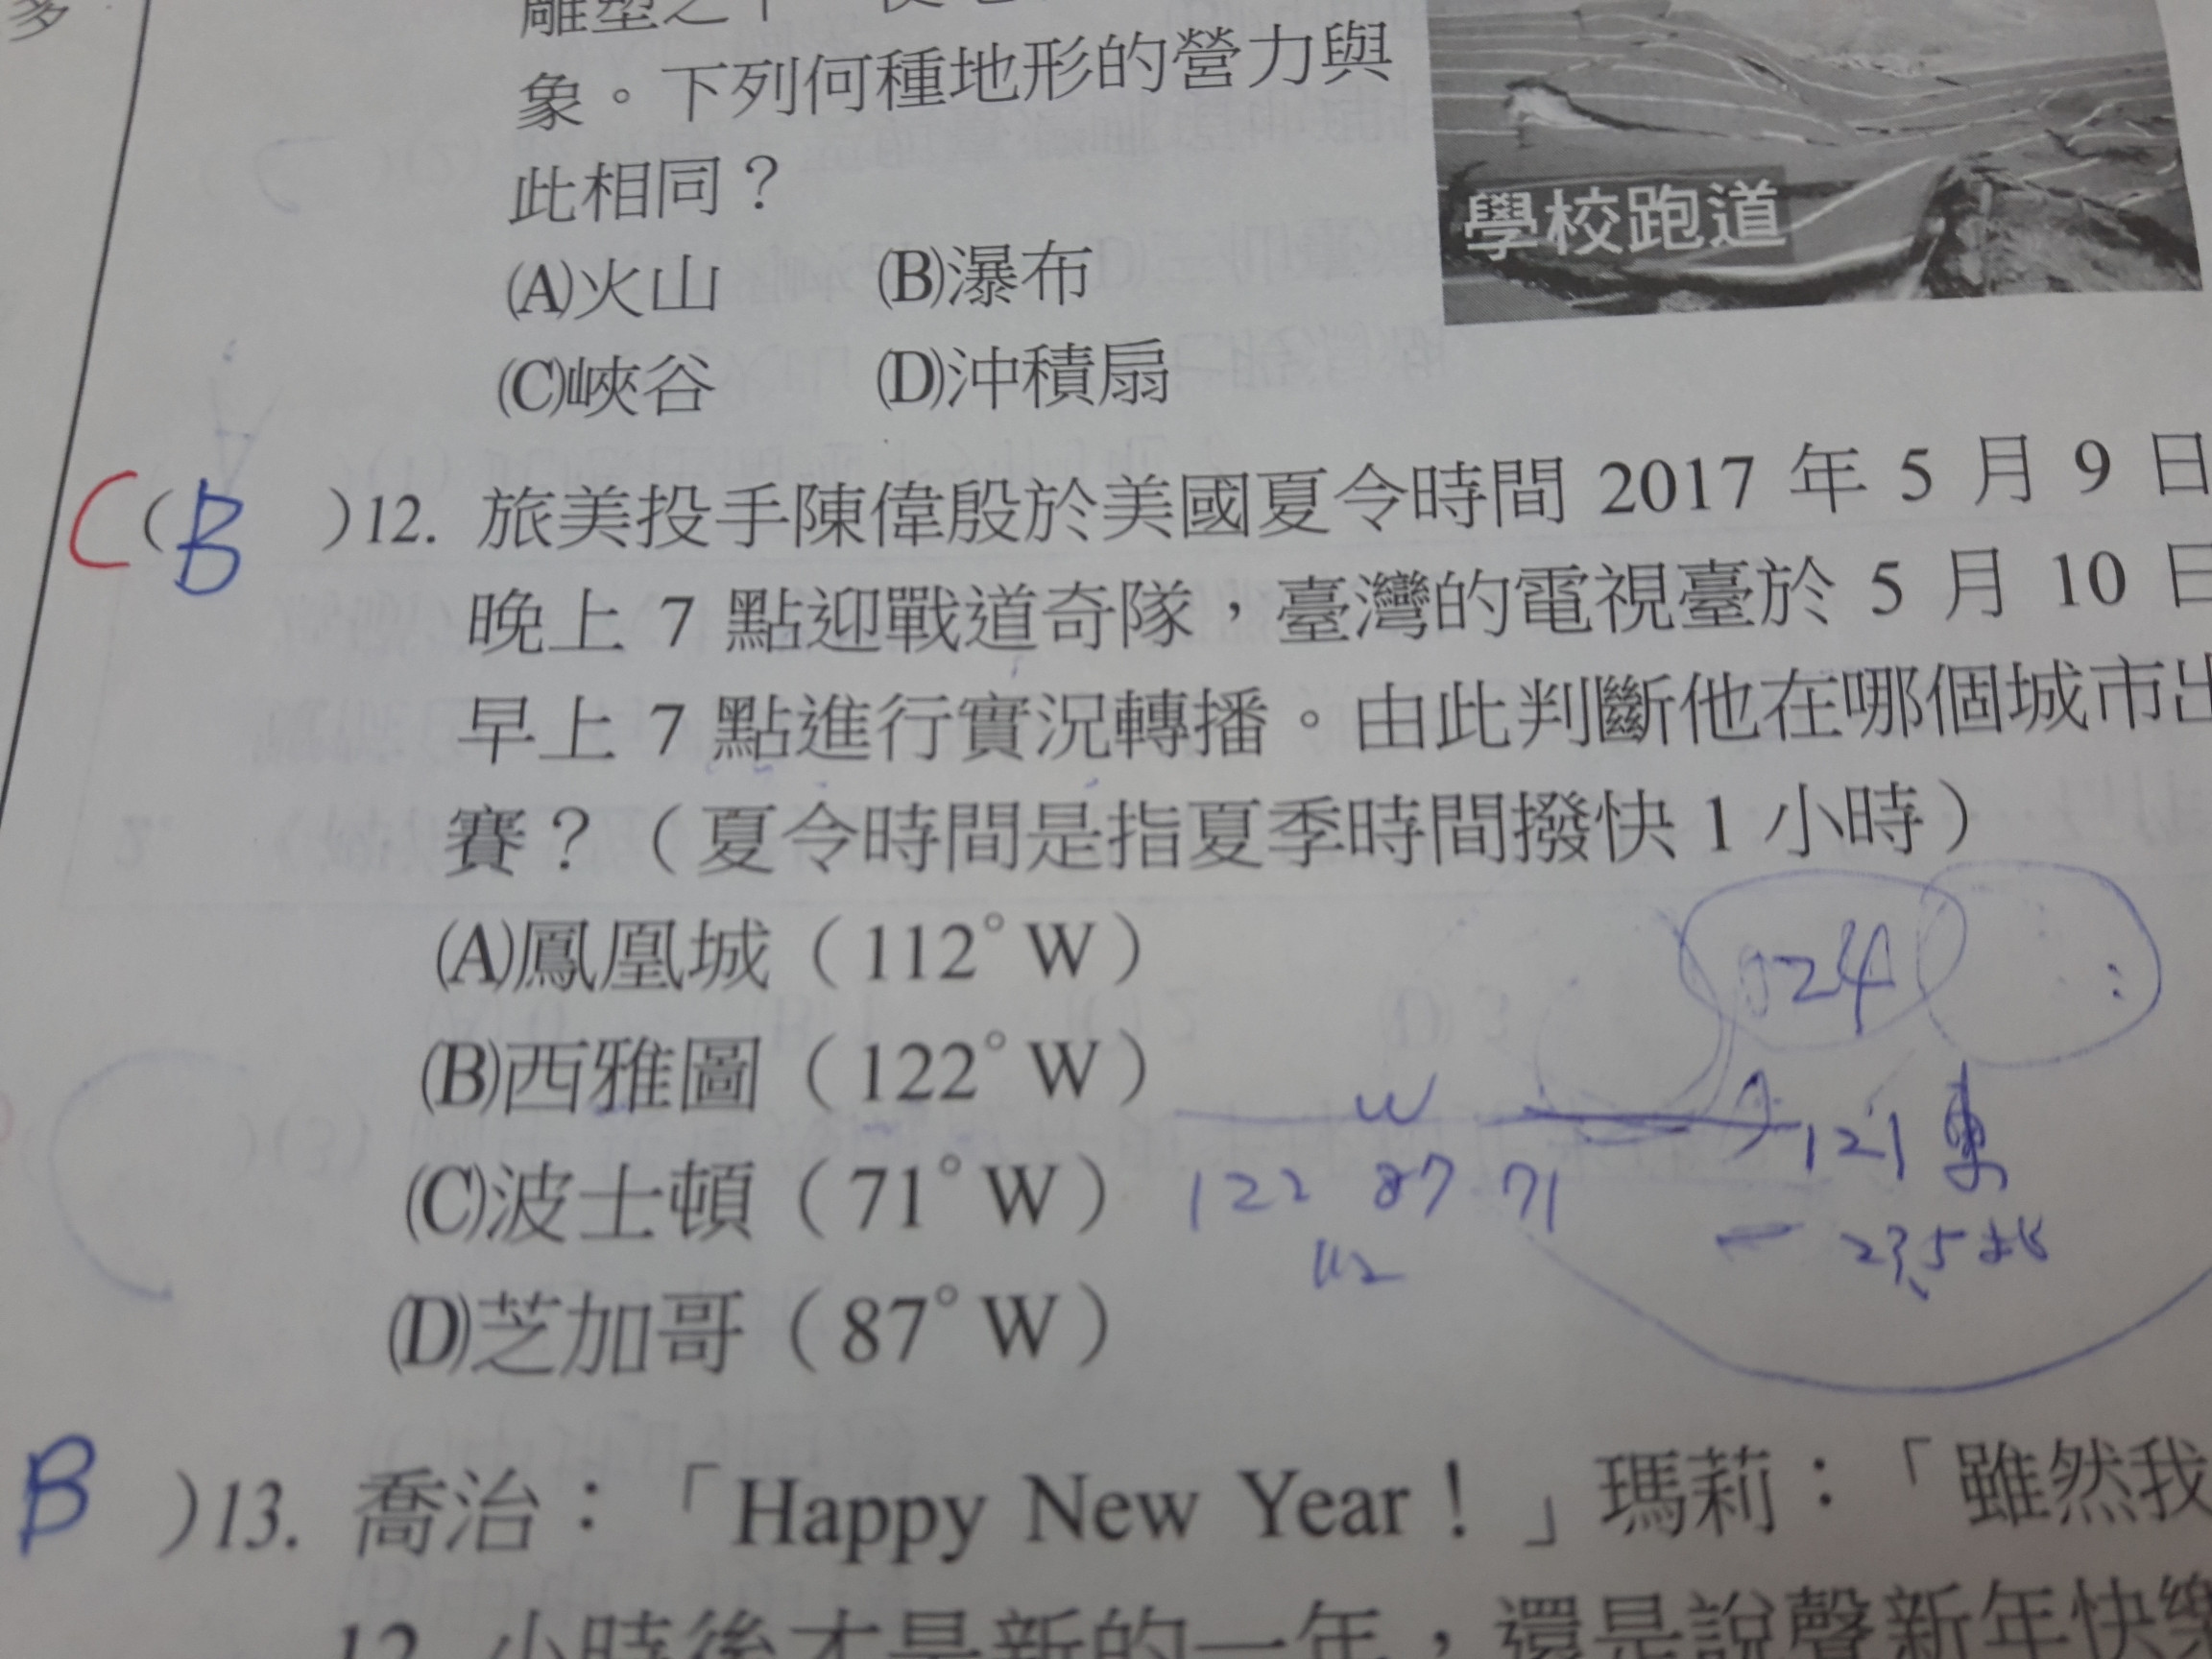 多
雕塑之下
象。下列何種地形的營力與
此相同？
學校跑道
(A)火山 (B)瀑布
(C)峽谷 (D)沖積扇
C(B )12. 旅美投手陳偉殷於美國夏令時間 2017 年 5 月 9 日
晚上 7 點迎戰道奇隊，臺灣的電視臺於 5 月 10 日
早上 7 點進行實況轉播。由此判斷他在哪個城市出
賽？（夏令時間是指夏季時間撥快 1 小時）
(A)鳳凰城（112°W）
(B)西雅圖（122°W）
(C)波士頓（71°W）
(D)芝加哥（87°W）
24
W
121 東
122 87 71
23.5 北
112
B )13. 喬治：「Happy New Year！」瑪莉：「雖然我
12 小時後才是新的一年，還是說聲新年快樂